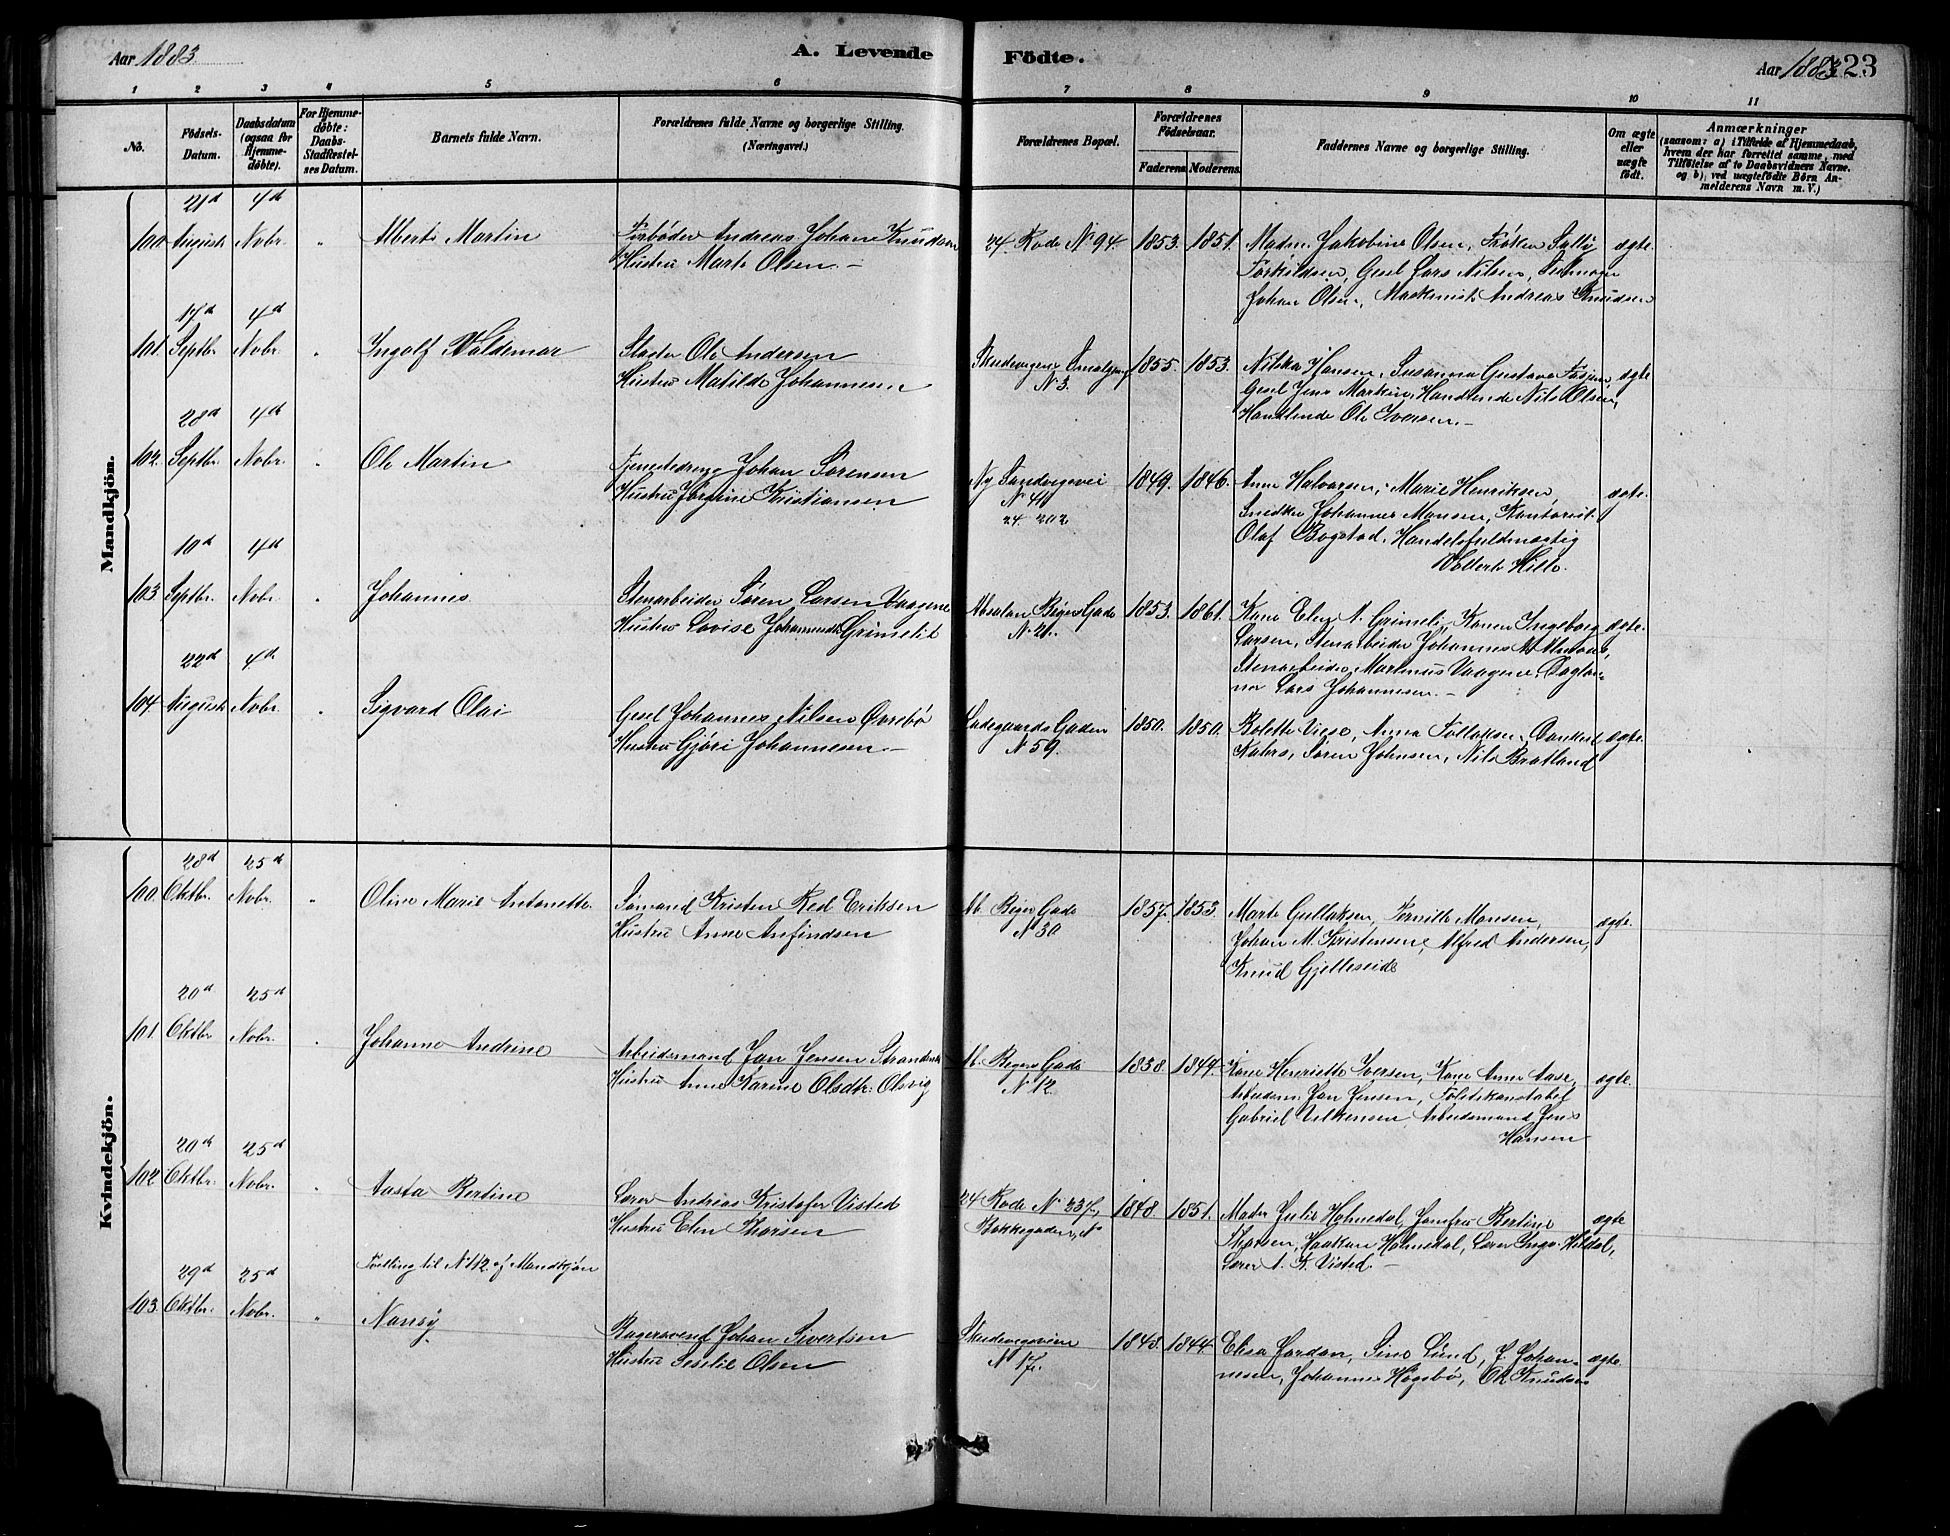 Aar 1883.
A. Levende
Födte.
Aar 1883.
23
1 2 3 4 5 6 7 8 9 10 11
No.
Födsels-Datum.
Daabsdatum (ogsaa for Hjemmedøbte).
For Hjemmedøbte: Daabs-Stadfæstelses Datum.
Barnets fulde Navn.
Forældrenes fulde Navne og borgerlige Stilling. (Næringsvei.)
Forældrenes Bopæl.
Forældrenes Födselsaar.
Faderens. Moderens.
Faddernes Navne og borgerlige Stilling.
Om ægte eller uægte födt.
Anmærkninger
(saasom: a) i Tilfælde af Hjemmedaab, hvem der har forrettet samme, med Tilföielse af to Daabsvidners Navne, og b), ved uægtefödte Börn Anmelderens Navn m. V.)
Mandkjön.
21d 4d
100. August Nobr. " Albert Martin
Andreas Johan Knudsen
Hustru Marte Olsen.
24. Rode N 94. 1853. 1851.
Madm. Jakobine Olsen, Frøken
Torkildsen, Gesel Lars Nilsen,
Johan Olsen, Maskinist Andreas Knudsen
ægte.
17d 4d
101. Septbr. Nobr. " Ingolf Valdemar
Ole Andersen
Hustru Matilde Johannesen
N 3. 1855. 1853.
Hansen, Susanna Gustava
Gesel Jens Handlende Nils Olsen,
Handlende Ole Iversen.
ægte
28d 4d
102. Septbr. Nobr. " Ole Martin
Tjenestedreng Johan Sørensen
Hustru Jørgine Kristiansen
Ny Sandvigsvei
N 41
24 202
1849. 1846.
Anne Halvorsen, Marie Henriksen,
Snedker Johannes Monsen, Kontorist
Olaf Bogstad, Handelsfuldmægtig
Hille.
ægte.
10d 4d
103 Septbr. Nobr. " Johannes
Stenarbeider Søren Larsen Vaagene
Hustru Lovise Grimelit
Absalon Beyers Gade
N 21. 1853. 1861.
Kone Elen N. Grimeli, Konen Ingeborg
Larsen, Stenarbeider Johannes
Stenarbeider Martinus Vaagene, Dagløn-
ner Lars Johannesen.
ægte.
22d 4d
104. August Nobr. " Sigvard Olai
Gesel Johannes Nilsen Øvrebø
Hustru Gjøri Johannesen
Ladegaards Gaden
N 59. 1850. 1850.
Bolette Anna
Søren Johnsen, Nils Bratland
ægte.
Kvindekjön.
28d 25d
100. Oktbr. Nobr. " Oline Marie Antonette
Sømand Kristen Red Eriksen
Hustru Anne Anfindsen
Ab. Beyers Gade
N 30 1857. 1853.
Marte Gullaksen, Pernille Monsen,
Johan M. Kristensen, Alfred Andersen,
Knud Gjelleseide
ægte.
20d 25d
101. Oktbr. Nobr. " Johanne Andrine
Arbeidsmand Jan Jensen
Hustru Anne Karine Olsdtr. Olsvig
Ab. Beyers Gade
N 12. 1838. 1844.
Kone Henriette Iversen, Kone Anne Aase,
Arbeidsm. Jan Jensen, Politikonstabel
Gabriel Arbeidsmand Jens
Hansen
ægte.
20d 25d
102 Oktbr. Nobr. " Aasta Bertine
Lærer Andreas Kristofer Visted
Hustru Elen Thorsen
24 Rode N 237,
Bakkegaden, N
1848. 1851.
Madm Julie Holmedal, Jomfru Bertine
Thorsen, Haakon Holmedal, Lærer
Lærer A. K. Visted.
ægte
Tvilling til N 112 af Mandkjøn
29d 25d
103. Oktbr. Nobr. " Nansy
Bagersvend Johan Sivertsen
Hustru Seselie Olsen
N 17. 1848. 1844.
Elisa Jordan, Sine Lund, J. Johan-
nesen, Johannes Høgsbø, Knudsen
ægte.